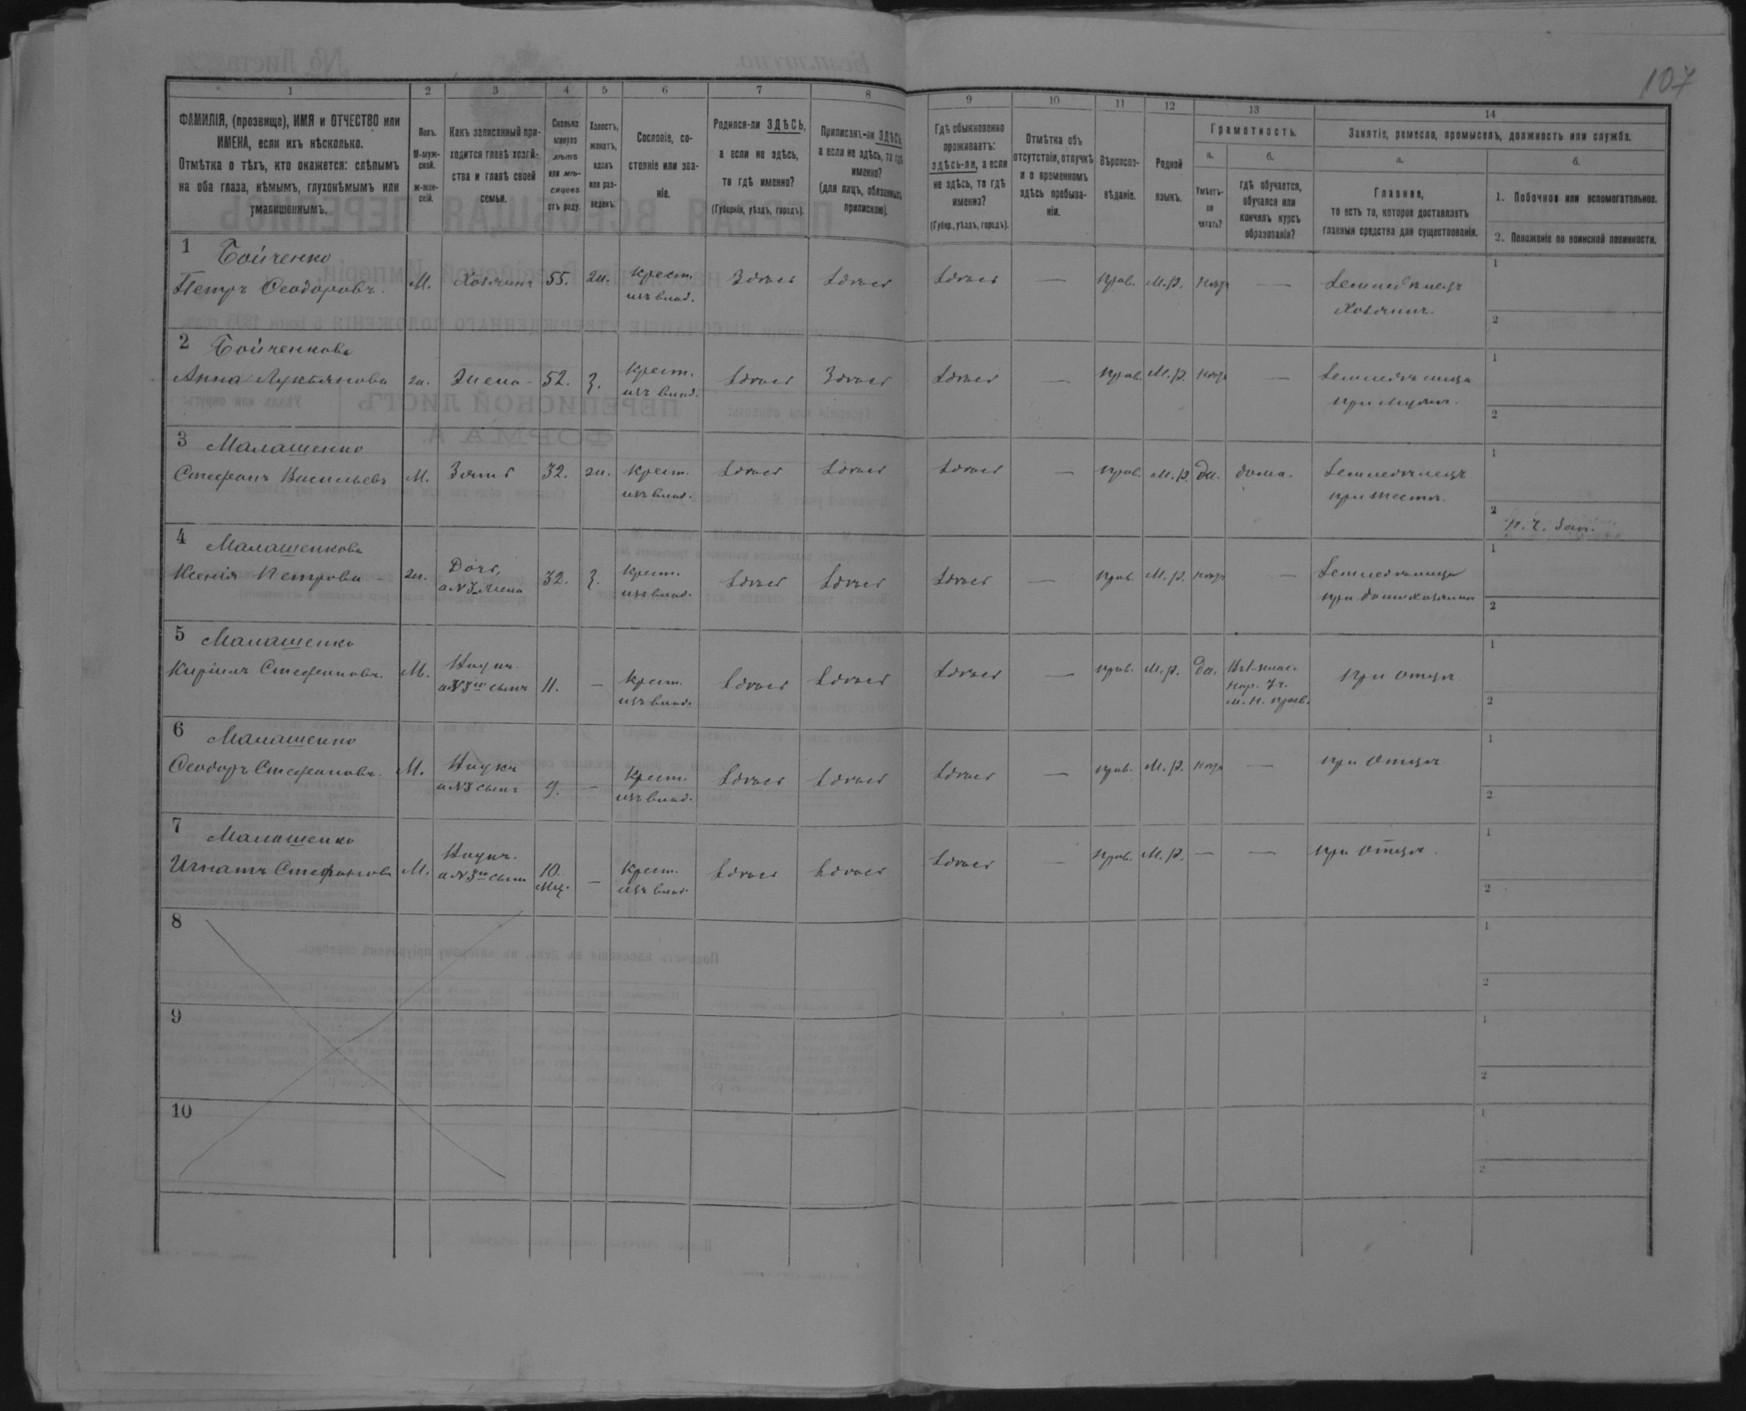 107
1 2 3 4 5 6 7 8 9 10 11 12 13 14
ФАМИЛІЯ, (прозвище), ИМЯ и ОТЧЕСТВО или
ИМЕНА, если ихъ нѣсколько.
Отмѣтка о тѣхъ, кто окажется: слѣпымъ
на оба глаза, нѣмымъ, глухонѣмымъ или
умалишеннымъ.
Полъ.
М-муж-
ской.
ж-жен-
скій.
Какъ записанный при-
ходится главѣ хозяй-
ства и главѣ своей
семьи.
Сколько
минуло
лѣтъ
или мѣ-
сяцевъ
отъ роду.
Холостъ,
женатъ,
вдовъ
или раз-
веденъ.
Сословіе, со-
стояніе или зва-
ніе.
Родился-ли ЗДѢСЬ,
а если не здѣсь,
то гдѣ именно?
(Губернія, уѣздъ, городъ).
Приписанъ-ли ЗДѢСЬ,
а если не здѣсь, то гдѣ
именно?
(для лицъ, обязанныхъ
припискою).
Гдѣ обыкновенно
проживаетъ:
здѣсь-ли, а если
не здѣсь, то гдѣ
именно?
(Губер., уѣздъ, городъ).
Отмѣтка объ
отсутствіи, отлучкѣ
и о временномъ
здѣсь пребыва-
ніи.
Вѣроиспо-
вѣданіе.
Родной
языкъ.
Грамотность.
а.
Умѣетъ-
ли
читать?
б.
гдѣ обучается,
обучался или
кончилъ курсъ
образованія?
Занятіе, ремесло, промыселъ, должность или служба.
а.
Главное,
то есть то, которое доставляетъ
главныя средства для существованія.
б.
1. Побочное или вспомогательное.
2. Положеніе по воинской повинности.
1 Бойченко
Петръ Ѳеодоровъ. М. Хозяинъ 55. ж. крест. Здѣсь Здѣсь Здѣсь — прав. М.р. нѣтъ — Земледѣлецъ
изъ влад. Хозяинъ.
2 Бойченкова
Анна Лукьянова ж. Жена 52. з. крест. Здѣсь Здѣсь Здѣсь — прав. М.р. нѣтъ — Земледѣлица
изъ влад. при мужѣ.
3 Малашенко
Стефанъ Васильевъ М. Зять 32. ж. крест. Здѣсь Здѣсь Здѣсь — прав. М.р. да. дома. Земледѣлецъ
изъ влад. при тестѣ.
4 Малашенкова
Ксенія Петрова ж. Дочь, 32. з. крест. Здѣсь Здѣсь Здѣсь — прав. М.р. нѣтъ — Земледѣлица
а N 3 жена изъ влад. при домохозяинѣ
5 Малашенко
Кириллъ Стефановъ. М. Внукъ 11. — крест. Здѣсь Здѣсь Здѣсь — прав. М.р. да. при отцѣ
а N 3го сынъ изъ влад.
6 Малашенко
Ѳеодоръ Стефановъ. М. Внукъ 9. — крест. Здѣсь Здѣсь Здѣсь — прав. М.р. нѣтъ — при отцѣ
а N 3 сынъ изъ влад.
7 Малашенко
Игнатъ Стефановъ М. Внукъ. 10 мѣс. — крест. Здѣсь Здѣсь Здѣсь — прав. М.р. — — при отцѣ.
а N 3го сынъ изъ влад.
8
9
10